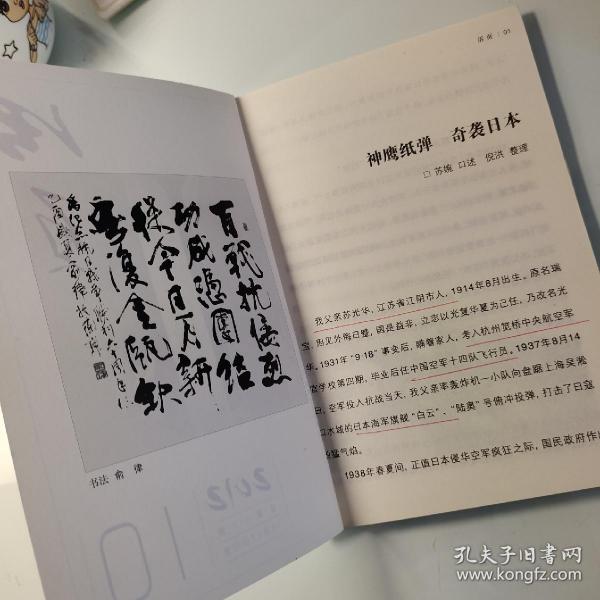 百戰抗倭烈
功成憑團結
保今日月新
無復金甌缺
书法 俞 律
2012
10
01
神鹰纸弹 奇袭日本
□ 苏婉 口述 倪洪 整理
我父亲苏光华，江苏省江阴市人，1914年8月出生。原名瑞
宝，忽见外侮日蹙，国是益非，立志以光复华夏为己任，乃改名光
华。1931年“9·18”事变后，瞒着家人，考入杭州笕桥中央航空军
官学校第四期，毕业后任中国空军十四队飞行员。1937年8月14
日，空军投入抗战当天，我父亲率轰炸机一小队向盘踞上海吴淞
口水域的日本海军旗舰“白云”、“陆奥”号俯冲投弹，打击了日寇
猛气焰。
1938年春夏间，正值日本侵华空军疯狂之际，国民政府作出
孔夫子旧书网
www.kongfz.com